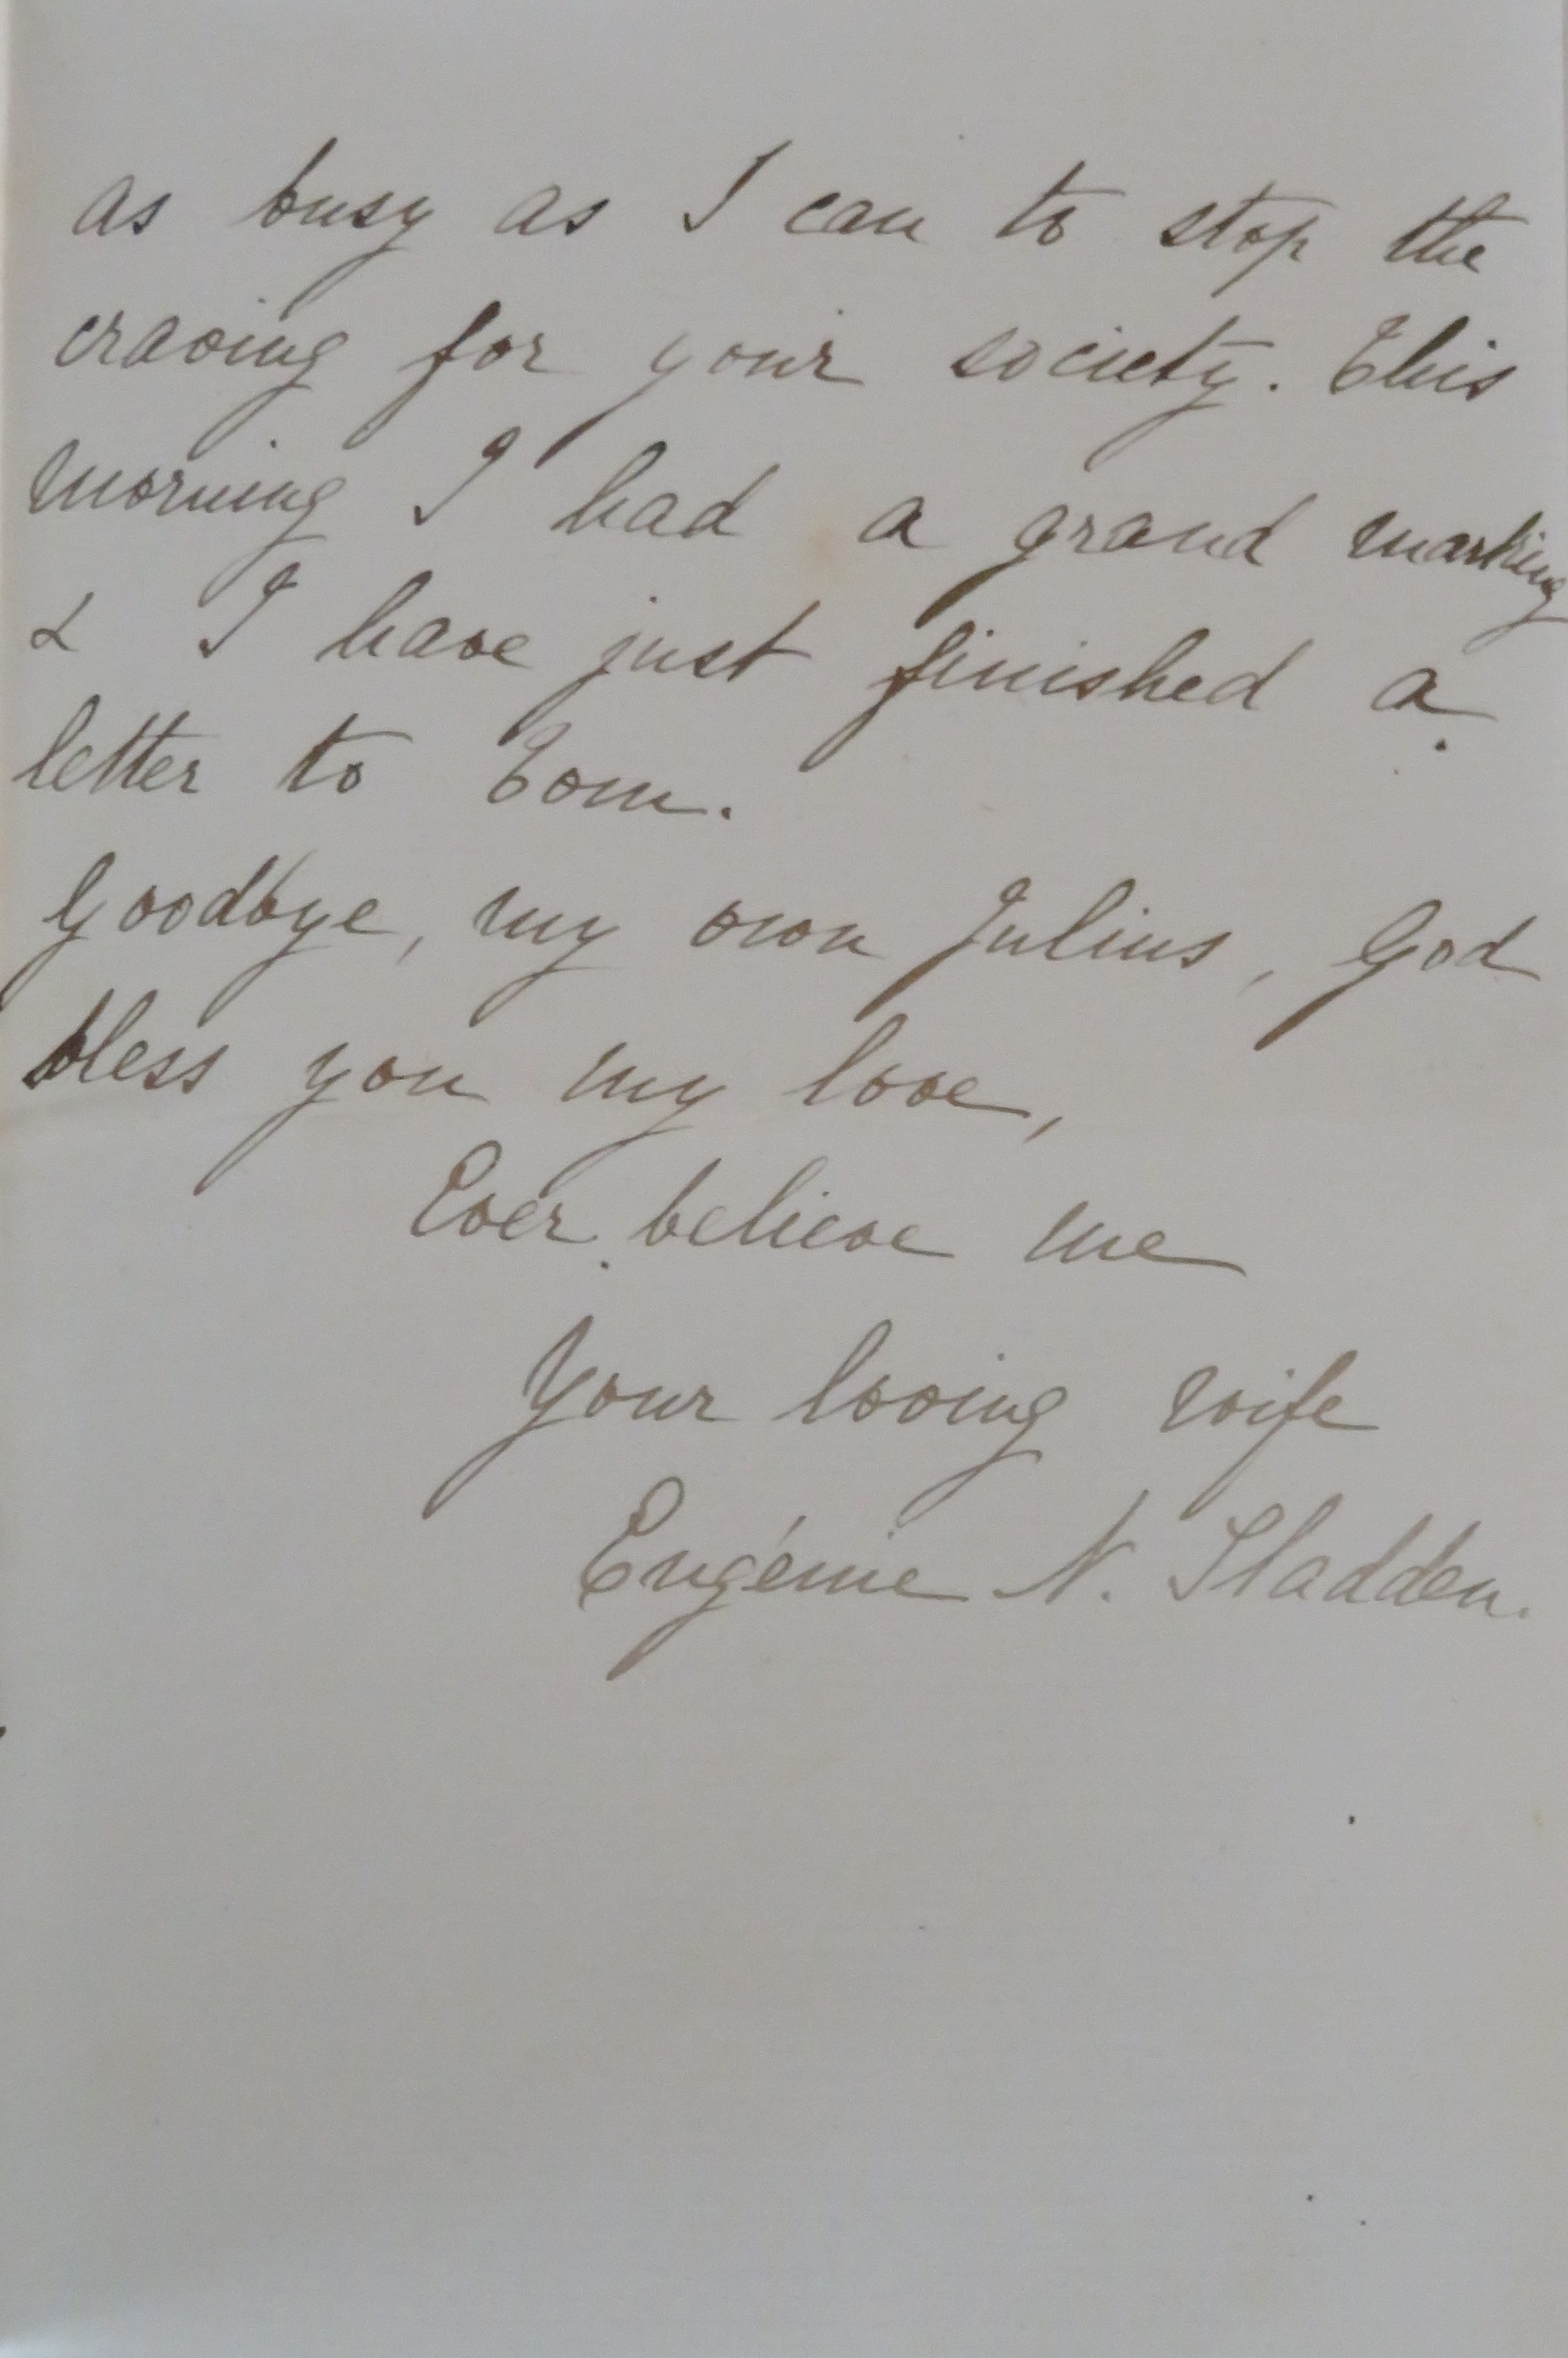 as busy as I can to stop the
craving for your society. This
morning I had a grand marking
& I have just finished a
letter to Tom.
Goodbye, my own Julius, God
bless you my love,
Ever believe me
Your loving wife
Eugénie N. Sladden.